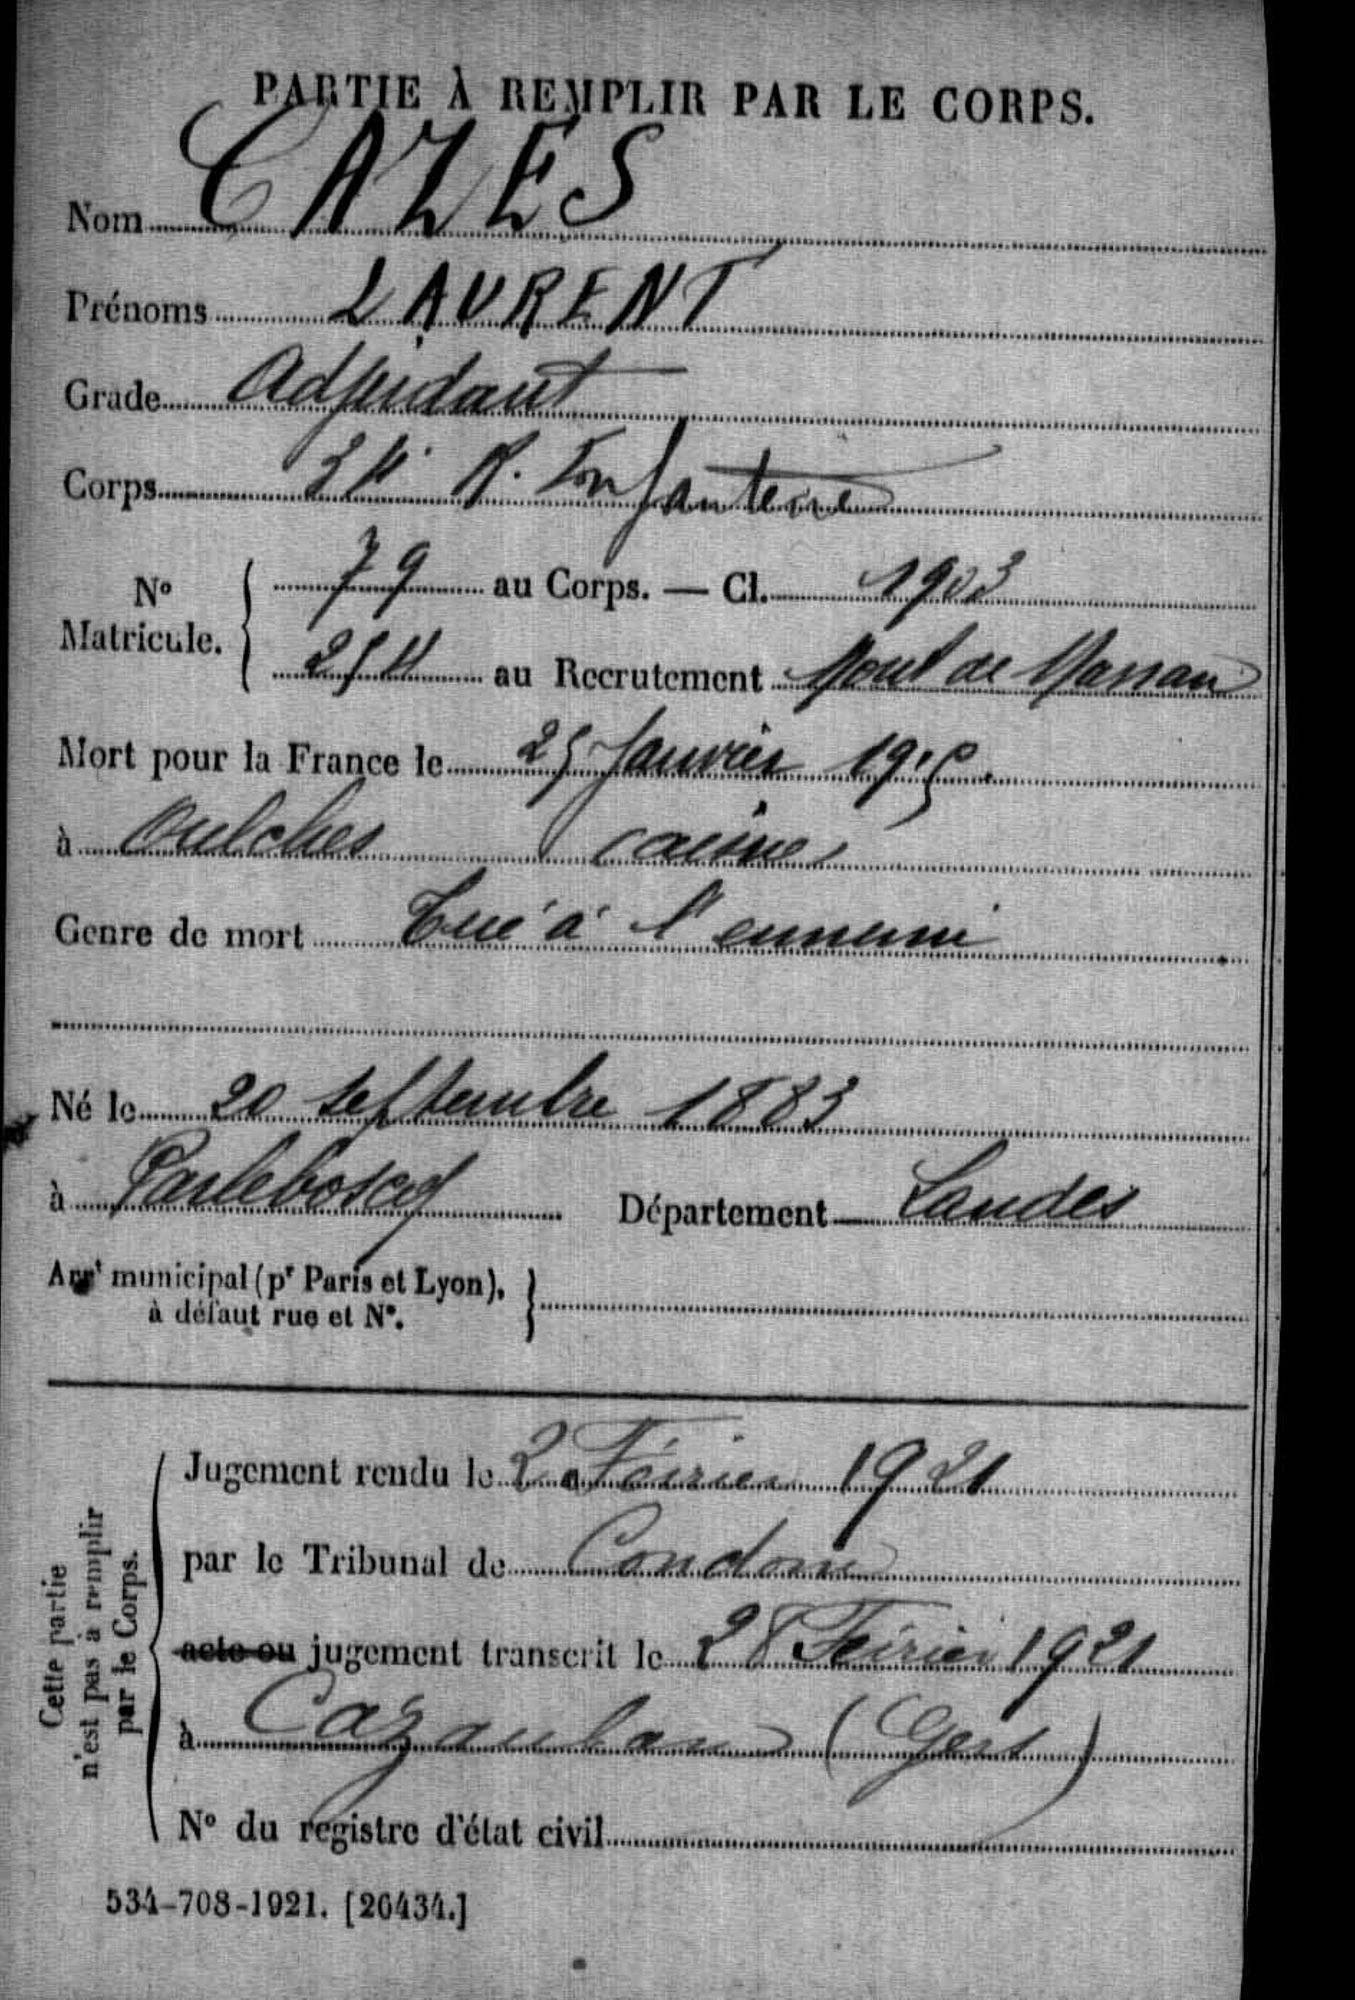 PARTIE À REMPLIR PAR LE CORPS.
Nom CAZES
Prénoms LAURENT
Grade Adjudant
Corps 34e R. Infanterie
No Matricule. 79 au Corps. — Cl. 1903
254 au Recrutement Mont de Marsan
Mort pour la France le 25 Janvier 1915.
à Oulches (aisne)
Genre de mort Tué à l'ennemi
Né le 20 septembre 1883
à Parleboscq Département Landes
Arrt municipal (pr Paris et Lyon),
à défaut rue et No.
Cette partie
n'est pas à remplir
par le Corps.
Jugement rendu le 2 Février 1921
par le Tribunal de Condom
acte ou jugement transcrit le 28 Février 1921
à Cazaubon (Gers)
No du registre d'état civil
534-708-1921. [26434.]